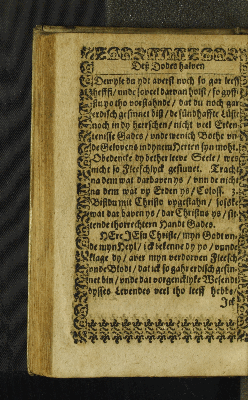 Des Doden halven
Dewyle du ydt averst noch so gar leeff
heffst / unde so veel darvan holst / so gyffstu yo tho vorstahnde / dat du noch gar
erdisch gesinnet bist / de sündhaffte Lüste
noch in dy herschen / nicht veel Erkentenisse Gades / unde wenich Bothe unde Gelovens in dynem Herten syn moht.
Bedencke dy bether leeve Seele / wes
nicht so Fleeschlyck gesinnet. Trachte
na dem wat darbaven ys / unn de nicht
na dem wat up Erden ys / Coloss. 3.
Bistu mit Christo upgestahn / so söke
wat dar baven ys / dar Christus ys / sittende thor rechtern Handt Gades.
HEre JEsu Christe / myn Godt unde myn Heyl / ick bekenne dy yo / unde
klage dy / aver myn verdorven Fleesch
unde Blodt / dat ick so gahr erdisch gesinnet bin / unde dat vorgencklyke Wesende
dysses Levendes veel tho leeff hebbe /
Ick